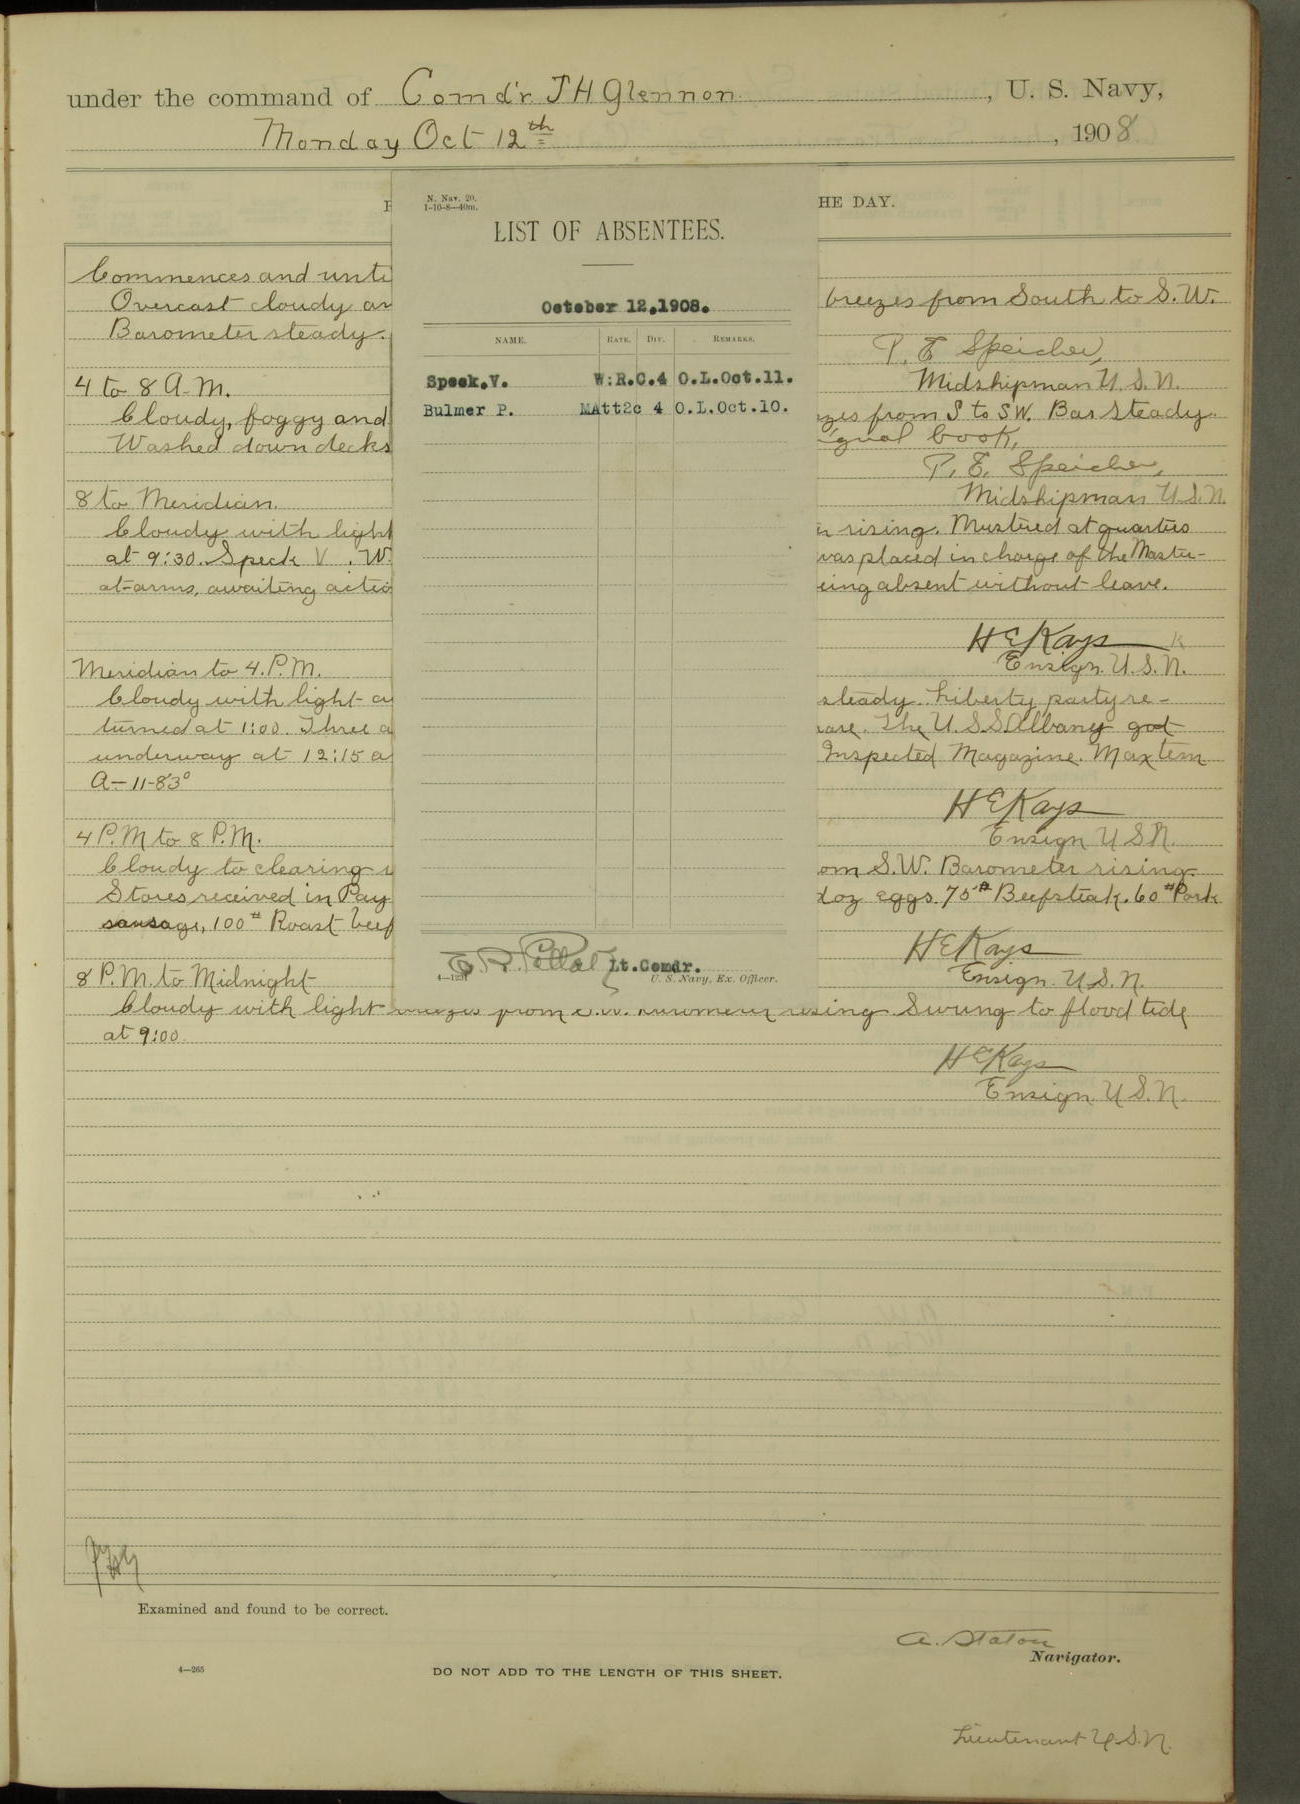 under the command of Comd'r J H Glennon, U. S. Navy,
Monday Oct 12th, 1908
HE DAY.
N. Nav. 20.
1-10-8—40m.
LIST OF ABSENTEES.
October 12,1908.
NAME. RATE. DIV. REMARKS.
Speek.V. W:R.C.4 O.L.Oct.11.
Bulmer P. MAtt2c 4 O.L.Oct.10.
Lt.Comdr.
4—1231 U. S. Navy, Ex. Officer.
Commences and unti
Overcast cloudy an breezes from South to S.W.
Barometer steady.
P. E. Speicher,
Midshipman U.S.N.
4 to 8 A.M.
Cloudy, foggy and zes from S to SW. Bar steady.
Washed down decks ignal book.
P. E. Speicher,
Midshipman U.S.N.
8 to Meridian.
Cloudy with light r rising. Mustered at quarters
at 9:30. Speck V. W. was placed in charge of the Master-
at-arms, awaiting actio eing absent without leave.
H E Kays
Ensign U.S.N.
Meridian to 4. P.M.
Cloudy with light steady. Liberty party re-
turned at 1:00. Three The U.S.S. Albany got
underway at 12:15 a Inspected Magazine. Max tem
A-11-83°
H E Kays
Ensign U S N.
4 P.M to 8 P.M.
Cloudy to clearing om S.W. Barometer rising.
Stores received in Pay doz eggs. 75# Beefsteak. 60# Pork
sausage, 100# Roast beef
H E Kays
Ensign. U.S.N.
8 P.M. to Midnight
Cloudy with light breezes from S.W. Barometer rising. Swung to flood tide
at 9:00.
H E Kays
Ensign U.S.N.
Examined and found to be correct.
A. Staton
Navigator.
4—265 DO NOT ADD TO THE LENGTH OF THIS SHEET.
Lieutenant U.S.N.